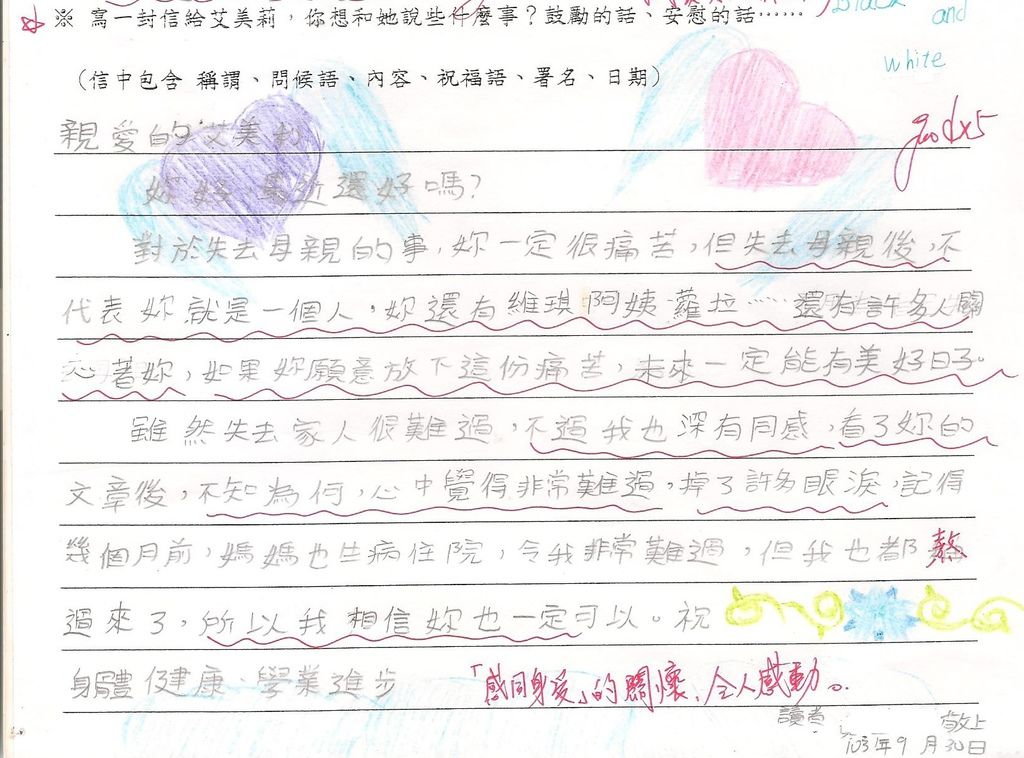 ※ 寫一封信給艾美莉，你想和她說些什麼事？鼓勵的話、安慰的話……
Black
and
white
（信中包含 稱謂、問候語、內容、祝福語、署名、日期）
goodx5
親愛的艾美莉
妳好，最近還好嗎？
對於失去母親的事，妳一定很痛苦，但失去母親後，不
代表妳就是一個人，妳還有維琪阿姨蘿拉……還有許多人關
心著妳，如果妳願意放下這份痛苦，未來一定能有美好日子。
雖然失去家人很難過，不過我也深有同感，看了妳的
文章後，不知為何，心中覺得非常難過，掉了許多眼淚，記得
幾個月前，媽媽也生病住院，令我非常難過，但我也都熬
過來了，所以我相信妳也一定可以。祝
身體健康、學業進步
「感同身受」的關懷，令人感動。
讀者
敬上
103年9月30日